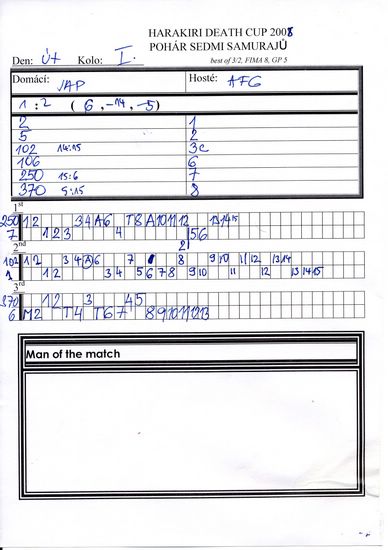 HARAKIRI DEATH CUP 2008
POHÁR SEDMI SAMURAJŮ
Den: Út Kolo: I. best of 3/2, FIMA 8, GP 5
Domácí: JAP Hosté: AFG
1 : 2 ( 6, -14, -5 )
2 1
5 2
102 14:15 3c
106 6
250 15:6 7
370 5:15 8
1st
250 1 2 3 4 A 6 T 8 A 10 11 12 13 14 15
7 1 2 3 4 5 6
2nd
102 1 2 3 4 6 7 8 9 10 11 12 13 14
1 1 2 3 4 5 6 7 8 9 10 11 12 13 14 15
3rd
370 1 2 3 4 5
6 M 2 T 4 T 6 7 8 9 10 11 12 13
Man of the match